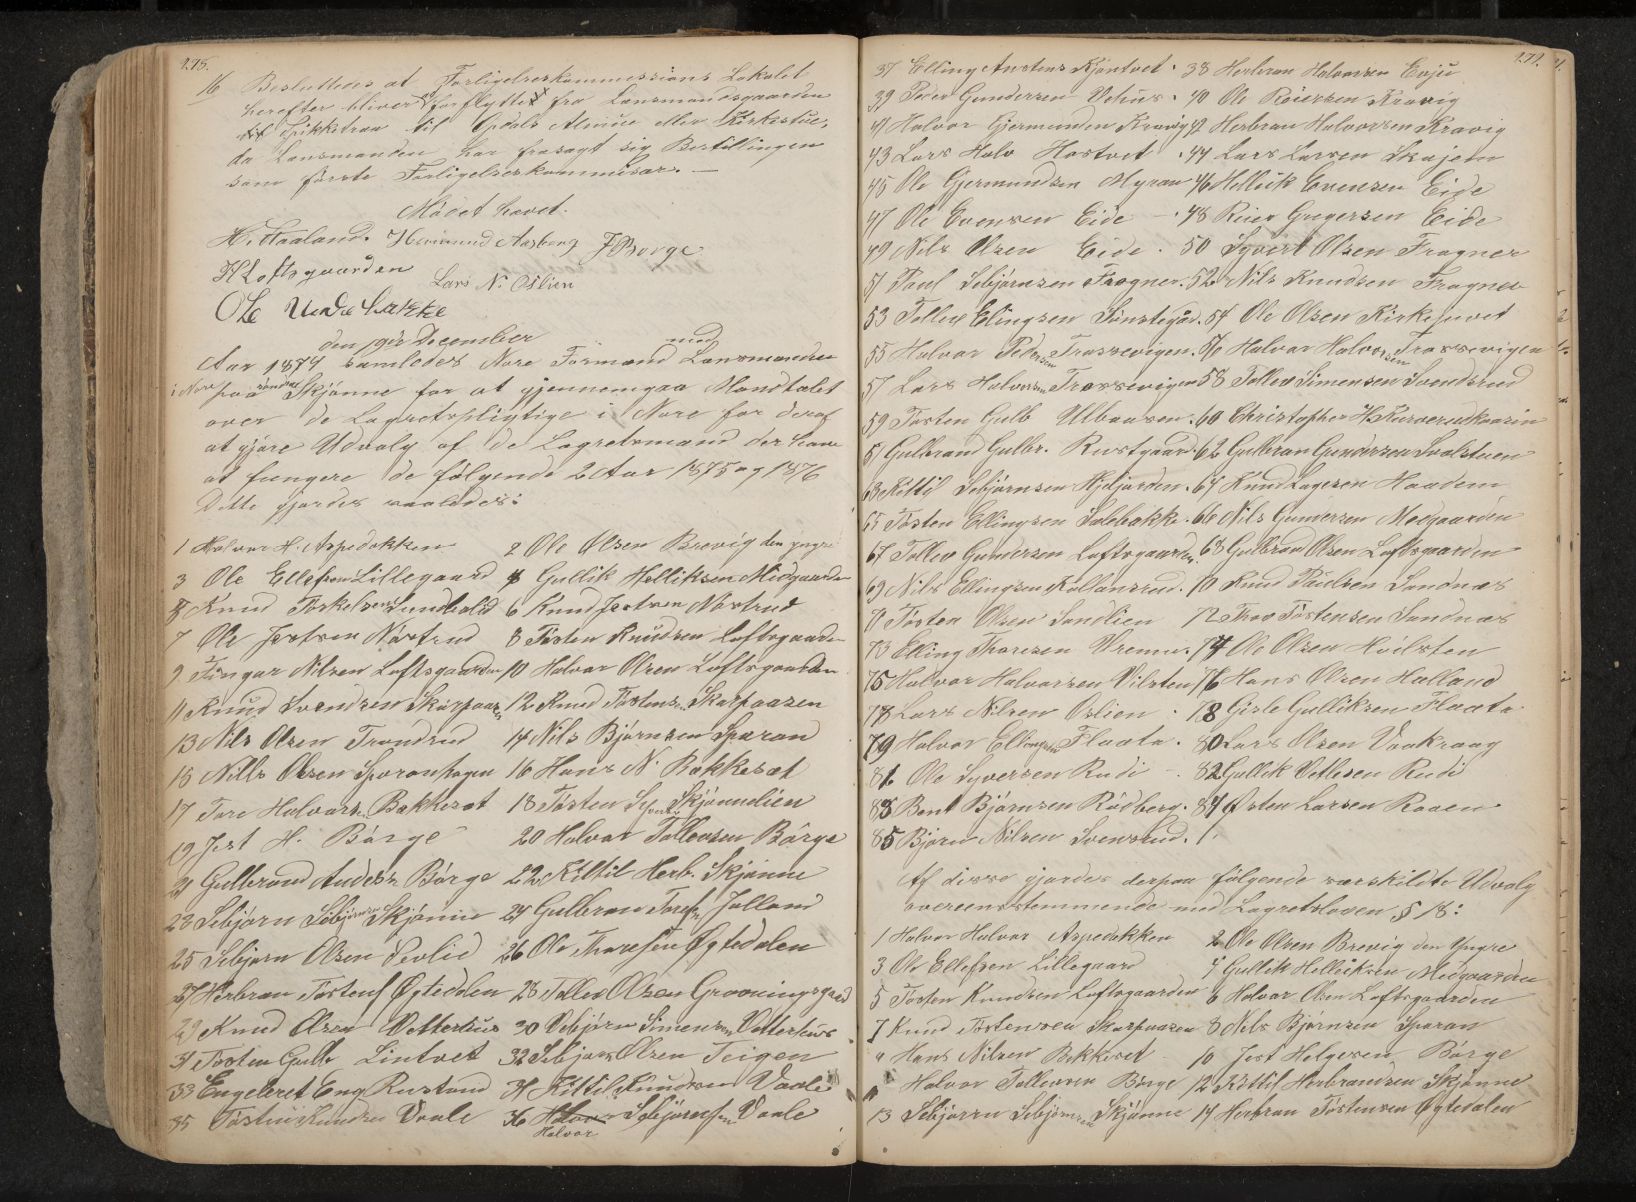 278.
16 Besluttedes at Forligelseskommissions Lokalet
herefter bliver forflyttet fra Lensmandsgaarden
til Opdals Almue eller Kirkestue,
da Lensmanden har frasagt sig Bestillingen
som første Forligelseskommisær. —
Mødet hævet.
H. Haaland. Herimund Aasberg J Borge
H Loftsgaarden Lars N. Oslien
Ole UndeBakke
den 19de December
Aar 1874 samledes Nore Formænd med Lensmanden
i Nore paa Søndre Skjønne for at gjennemgaa Mandtalet
over de Lagretspligtige i Nore for deraf
at gjøre Udvalg af de Lagretsmænd der have
at fungere de følgende 2 Aar 1875 og 1876
Dette gjordes saaledes:
1 Halvor H. Aspedokken 2 Ole Olsen Brevig den yngre
3 Ole Ellefsen Lillegaard 4 Gullik Helliksen Midgaarden
5 Knud Torkelsen Sundbolid 6 Knud Jostsen Nørstrud
7 Ole Jostsen Nørstrud 8 Tosten Knudsen Loftsgaarden
9 Fingar Nilsen Loftsgaarden 10 Halvor Olsen Loftsgaarden
11 Knud Svendsen Skarpaasen 12 Knud Tostens. Skarpaasen
13 Nils Olsen Trondrud 14 Nils Bjørnsen Sporan
15 Nills Olsen Sporanhagen 16 Hans N. Bakkesæt
17 Tore Halvors. Bakkesæt 18 Tosten Skjønnelien
19 Jost H. Børge 20 Halvor Tollevsen Børge
21 Gulbrand Anders. Børge 22 Kittil Herb. Skjønne
23 Sebjørn Sebjørnsen Skjønne 24 Gulbran Tores. Jølland
25 Sebjørn Olsen Sevlid 26 Ole Thoresen Øgtedalen
27 Herbran Tostens Øgtedalen 28 Tollev Olsen Grooningsgaard
29 Knud Olsen Vetterhus 30 Vebjørn Simensen Vetterhus
31 Tosten Gulb Lintvet 32 Sebjørn Olsen Teigen
33 Engebret Eng Rustand 34 Kittil Knudsen Vaale
35 Tosten Knudsen Vaale 36 Halvor Sebjørnsen Vaale
Halvor
279.
37 Elling Anstens Kjøntvet. 38 Herbran Halvorsen Evju
39 Peder Gundersen Vehus. 40 Ole Reiersen Kravig
41 Halvor Gjermunden Kravig 42 Herbran Halvorsen Kravig
43 Lars Halv Hostvet. 44 Lars Larsen Skajem
45 Ole Gjermundsen Myran 46 Hellik Evensen Eide
47 Ole Evensen Eide —. 48 Reier Gregersen Eide
49 Nils Olsen Eide. 50 Syvert Olsen Fragner
51 Paul Sebjørnsen Fragner. 52 Nils Knudsen Fragner
53 Tollev Elingsen Sønstegår. 54 Ole Olsen Kirkejuvet
55 Halvor Pedersen Trossevigen. 56 Halvor Halvorsen Trossevigen
57 Lars Halvorsen Trossevigen 58 Tollev Simensen Svendsrud
59 Tosten Gulb Ulbaasen. 60 Christopher H. Karverudkaasin
61 Gulbrand Gulbr. Rustgaard. 62 Gulbran Gundersen Svalstuen
63 Kittil Sebjørnsen Hjeljorden. 64 Knud Lagesen Haadem
65 Tosten Ellingsen Salebakke. 66 Nils Gunersen Medgaarden
67 Tollev Gundersen Loftsgaarden. 68 Gulbran Olsen Loftsgaarden
69 Nils Ellingsen Kollansrud. 70 Knud Paulsen Sandnæs
71 Tosten Olsen Sandlien 72 Thor Tostensen Sandnæs
73 Elling Thoresen Vrenne. 74 Ole Olsen Hvilsten
75 Halvor Halvorsen Vilsten 76 Hans Olsen Halland
77 Lars Nilsen Oslien. 78 Gisle Gulliksen Flaata
79 Halvor Ellingsen Flaata. 80 Lars Olsen Vaakraag
81. Ole Syversen Rudi —. 82 Gullik Vetlesen Rudi
83 Bent Bjørnsen Rødberg. 84 Østen Larsen Raaen
85 Bjørn Nilsen Svensrud.
Af disse gjordes derpaa følgende særskildte Udvalg
overeensstemmende med Lagretsloven § 18:
1 Halvor Halvor Aspedokken 2 Ole Olsen Brevig den Yngre
3 Ole Ellefsen Lillegaard 4 Gullik Helliksen Medgaarden
5 Tosten Knudsen Loftsgaarden 6 Halvor Olsen Loftsgaarden
7 Knud Tostensen Skarpaasen 8 Nils Bjørnsen Sporan
9 Hans Nilsen Bakkeset 10 Jost Helgesen Børge
Halvor Tollevsen Børge 12 Kittil Herbrandsen Skjønne
13 Sebjørn Sebjørnsen Skjønne 14 Herbran Tostensen Øgtedalen